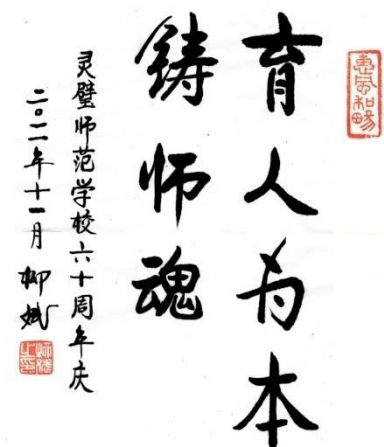 惠风和畅
育人为本
铸师魂
灵璧师范学校六十周年庆
二〇一一年十一月 柳斌